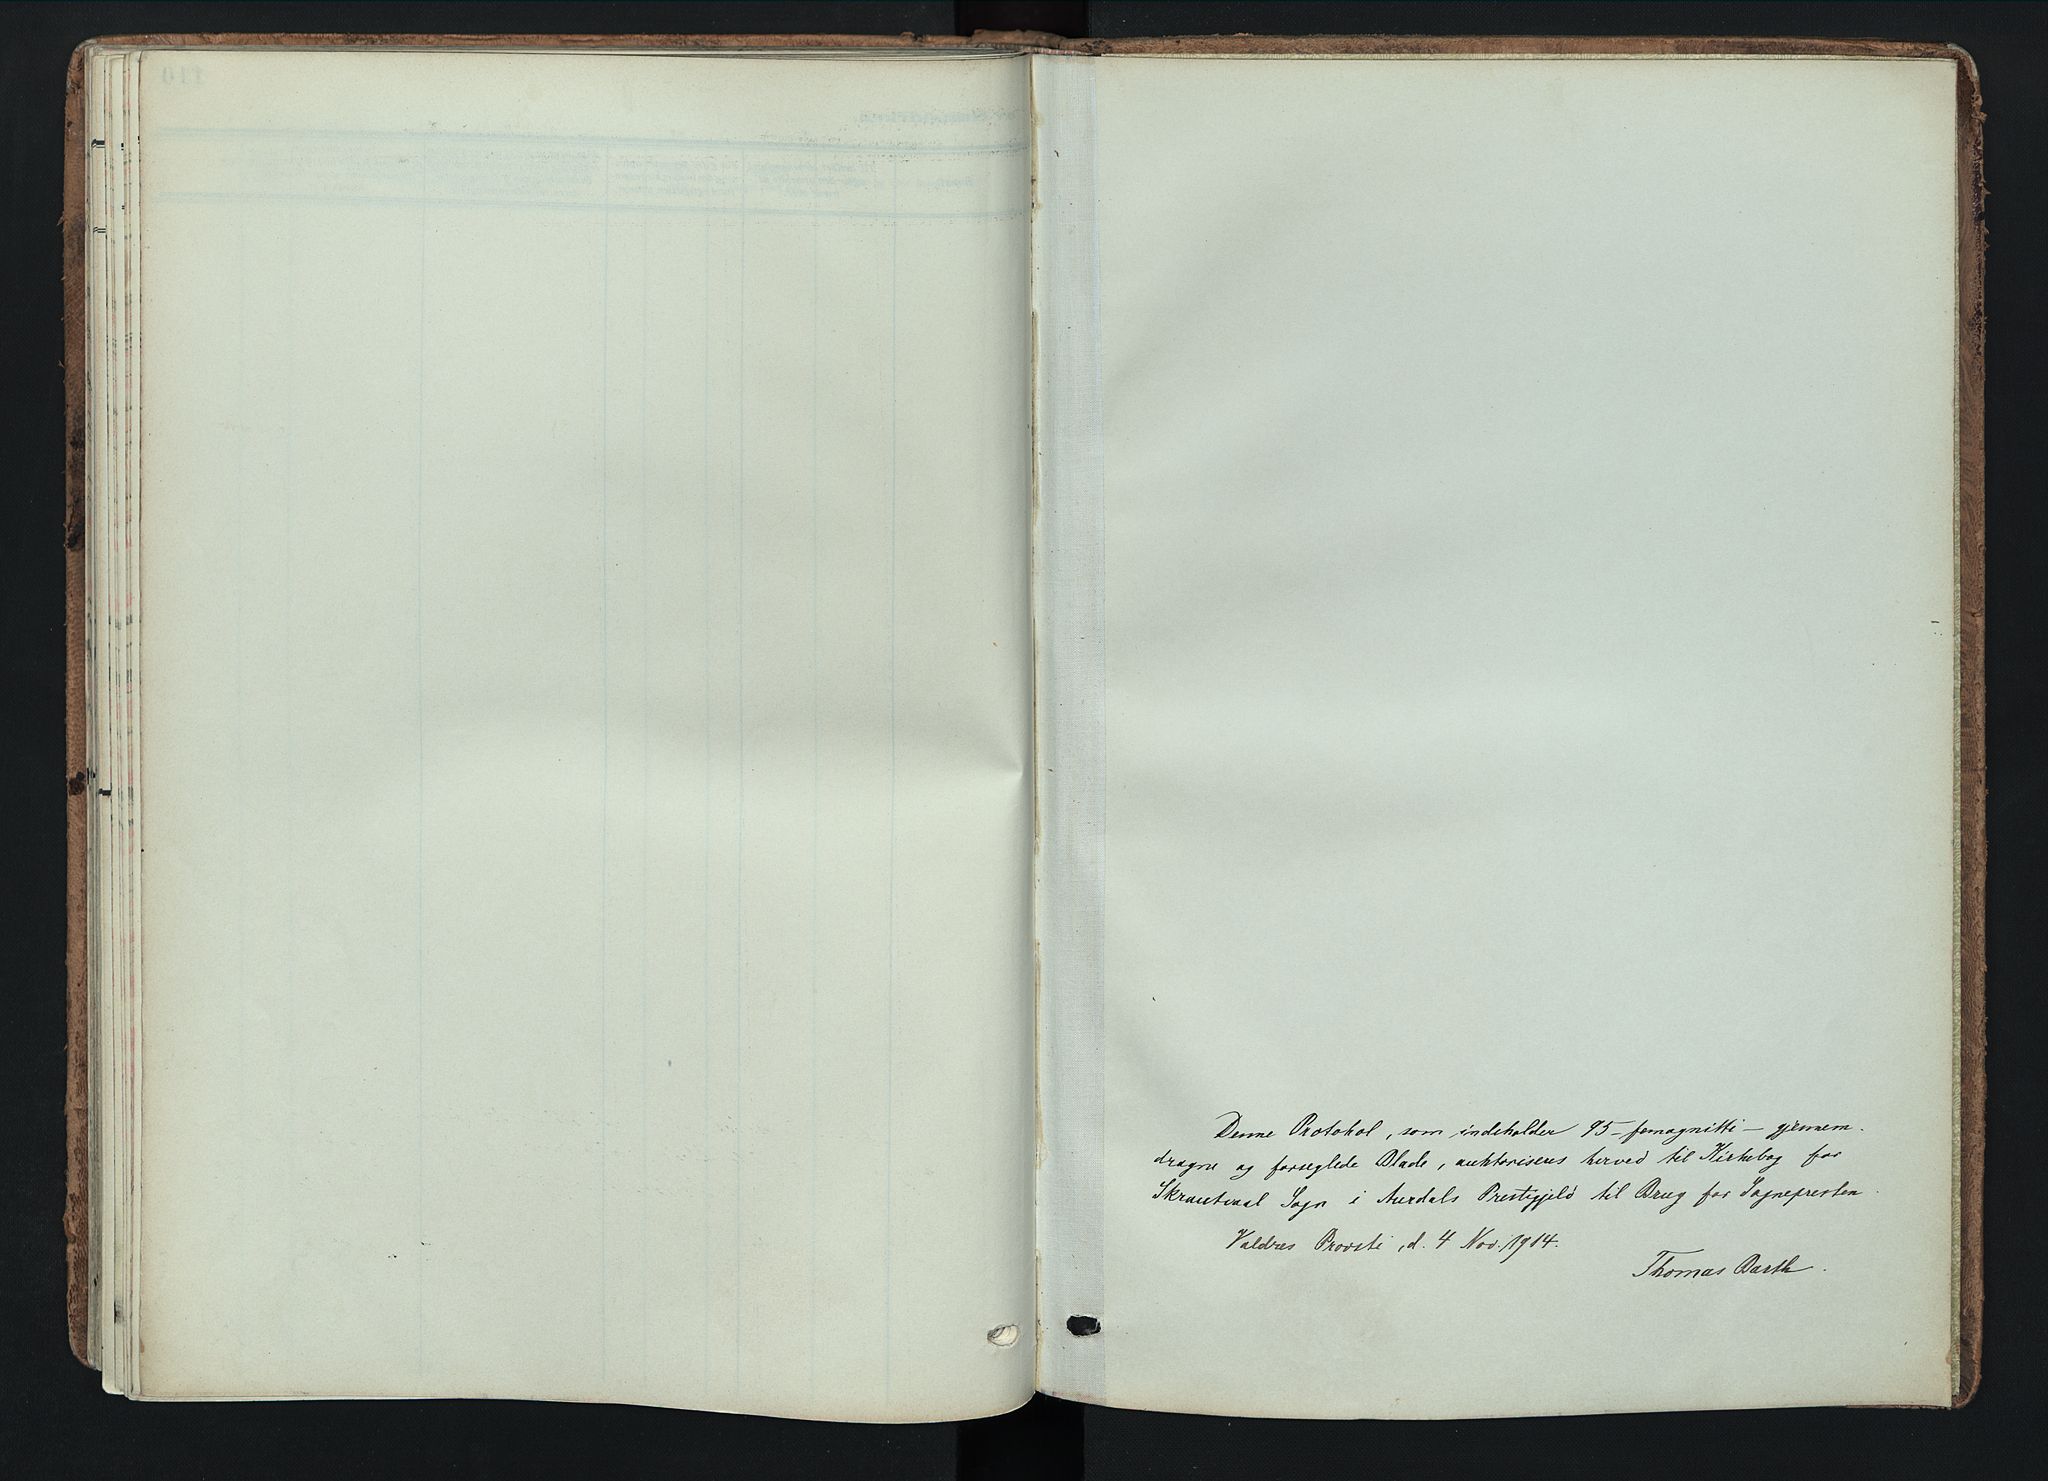 Denne Protokol, som indeholder 95 - femognitti - gjennem-
dragne og forseglede Blade, auktoriseres herved til Kirkebog for
Skrautvaal Sogn i Aurdals Prestigjeld til Brug for Sognepresten.
Valdres Provsti, d. 4 Nov. 1914.
Thomas Barth.